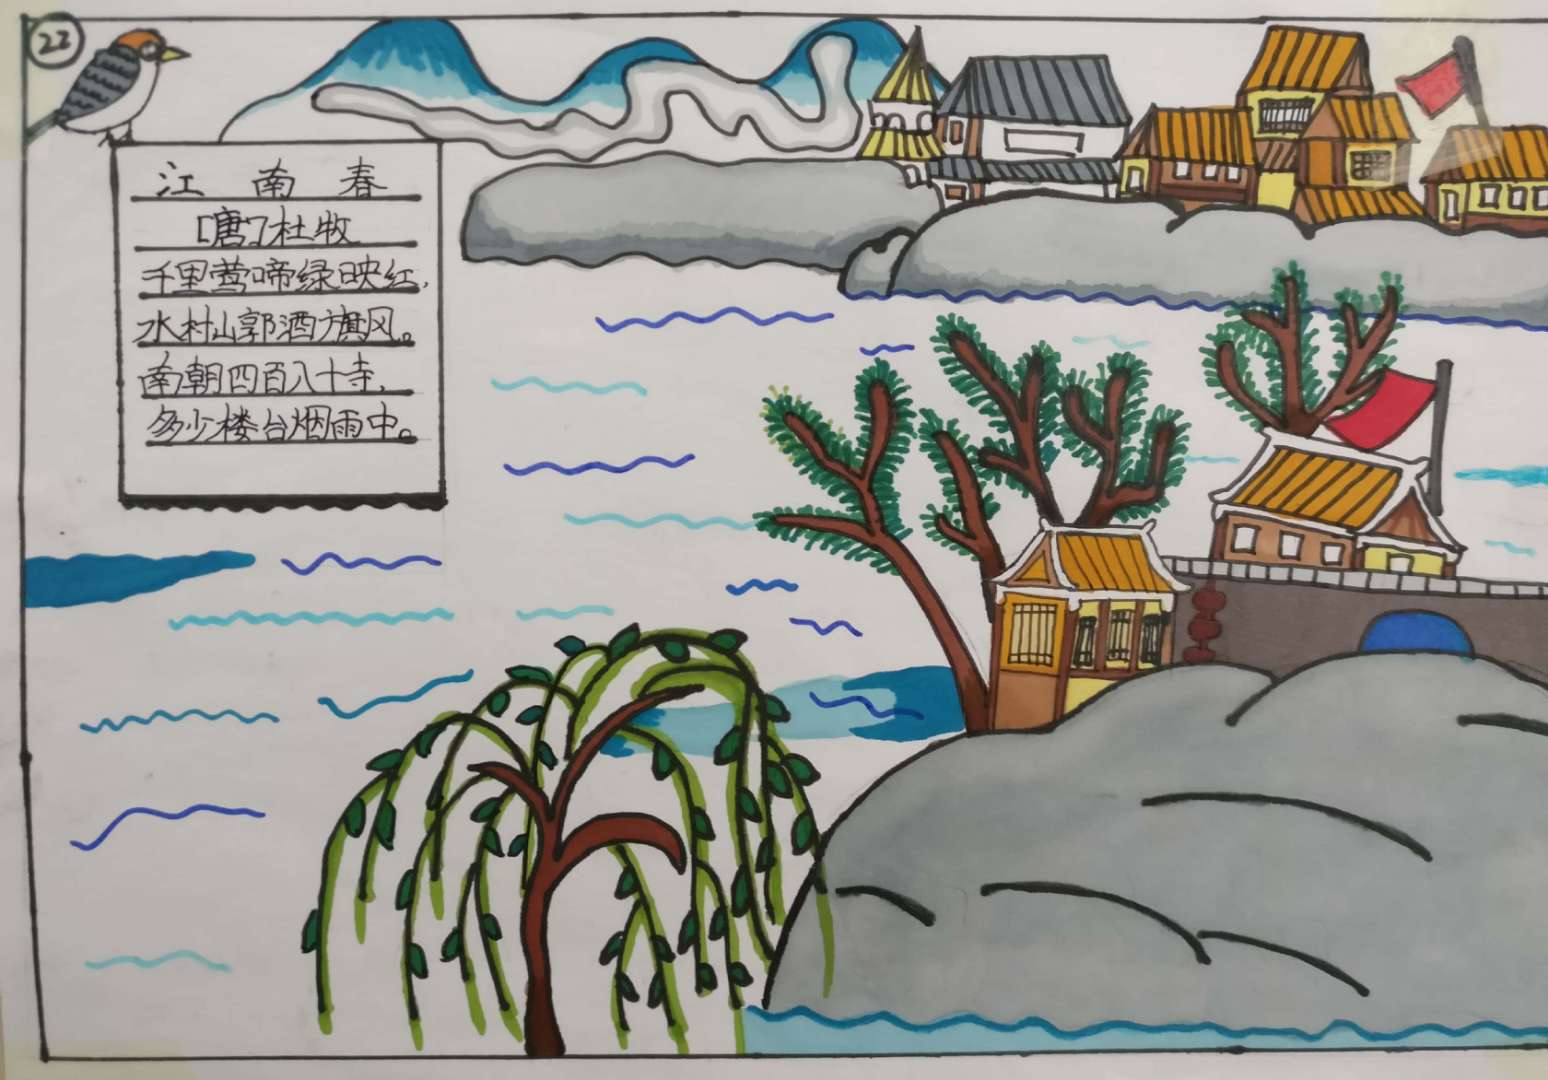 22
江南春
[唐]杜牧
千里莺啼绿映红,
水村山郭酒旗风。
南朝四百八十寺,
多少楼台烟雨中。